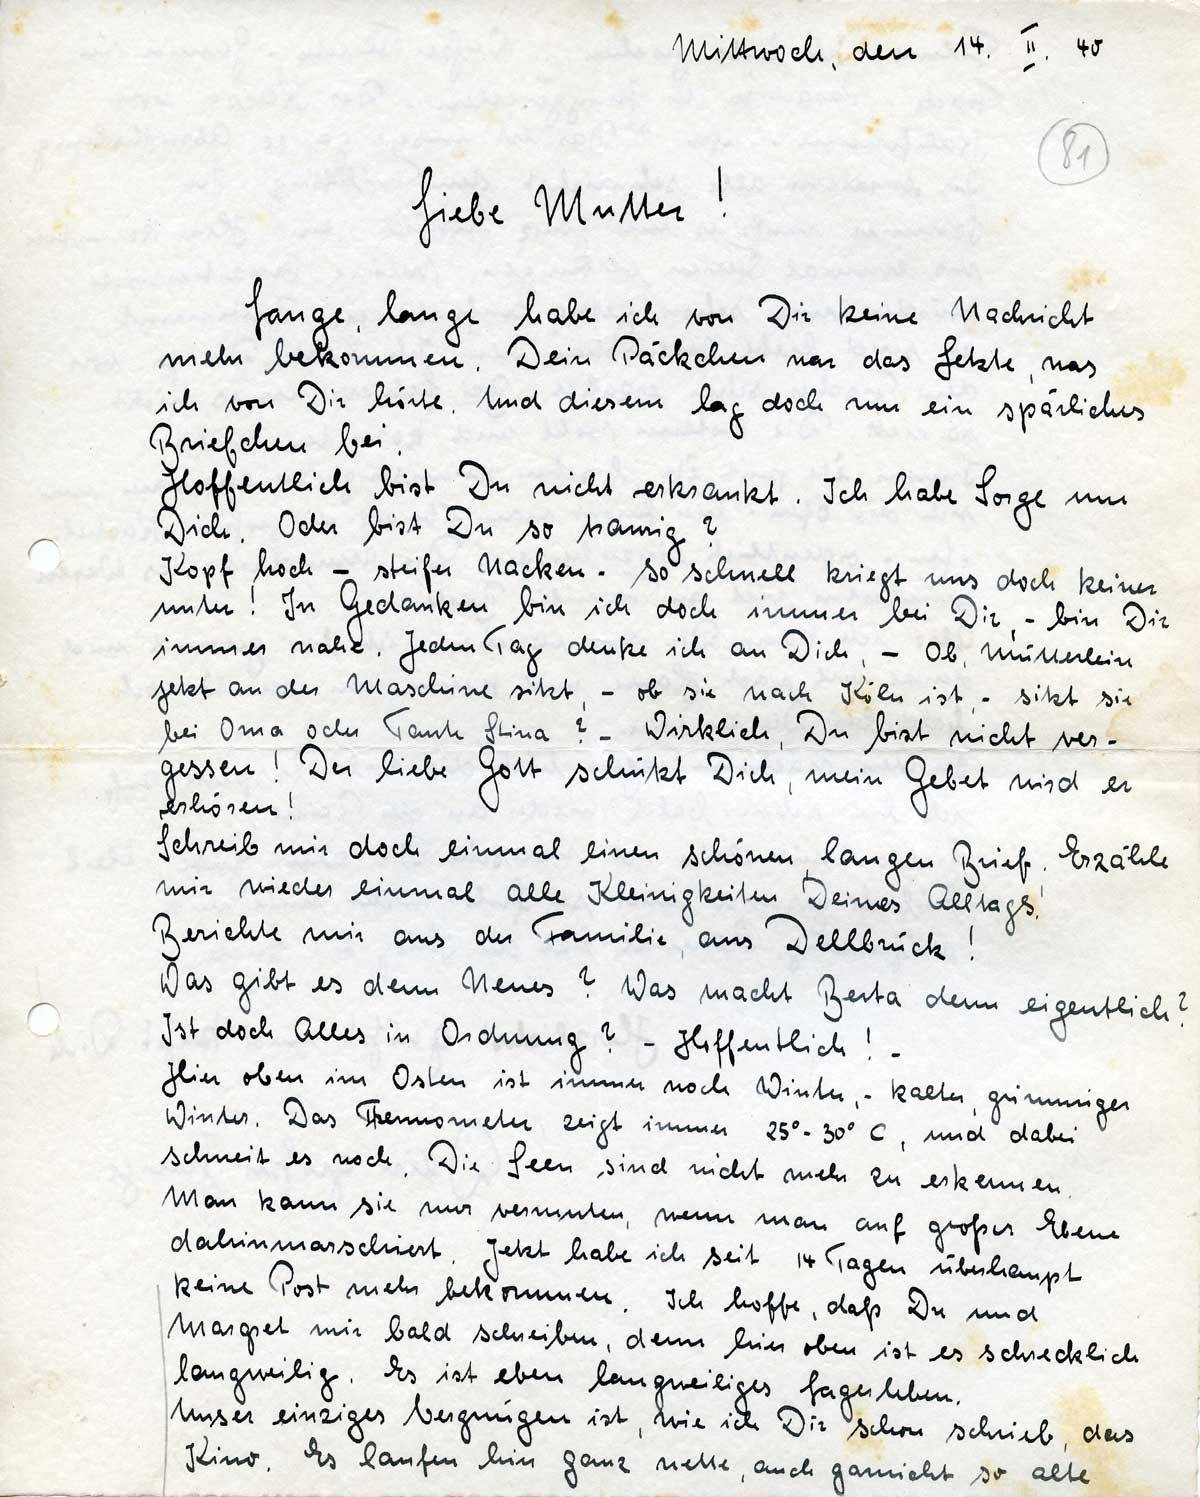 Mittwoch, den 14. II. 40
81
Liebe Mutter!
Lange, lange habe ich von Dir keine Nachricht
mehr bekommen. Dein Päckchen war das Letzte, was
ich von Dir hörte. Und diesem lag doch nur ein spärliches
Briefchen bei.
Hoffentlich bist Du nicht erkrankt. Ich habe Sorge um
Dich. Oder bist Du so traurig?
Kopf hoch - steifer Nacken - so schnell kriegt uns doch keiner
unter! In Gedanken bin ich doch immer bei Dir, - bin Dir
immer nahe. Jeden Tag denke ich an Dich, - Ob, Mütterlein
jetzt an der Maschine sitzt, - ob sie nach Köln ist, - sitzt sie
bei Oma oder Tante Stina? - Wirklich, Du bist nicht ver-
gessen! Der liebe Gott schützt Dich, mein Gebet wird er
erhören!
Schreib mir doch einmal einen schönen, langen Brief! Erzähle
mir wieder einmal alle Kleinigkeiten Deines Alltags!
Berichte mir aus der Familie, aus Dellbrück!
Was gibt es denn Neues? Was macht Berta denn eigentlich?
Ist doch Alles in Ordnung? - Hoffentlich! -
Hier oben im Osten ist immer noch Winter, - kalter, grimmiger
Winter. Das Thermometer zeigt immer 25°-30° C, und dabei
schneit es noch. Die Seen sind nicht mehr zu erkennen.
Man kann sie nur vermuten, wenn man auf großer Ebene
dahinmarschiert. Jetzt habe ich seit 14 Tagen überhaupt
keine Post mehr bekommen. Ich hoffe, daß Du und
Margret mir bald schreiben, denn hier oben ist es schrecklich
langweilig. Es ist eben langweiliges Lagerleben.
Unser einziges Vergnügen ist, wie ich Dir schon schrieb, das
Kino. Es laufen hier ganz nette, auch garnicht so alte